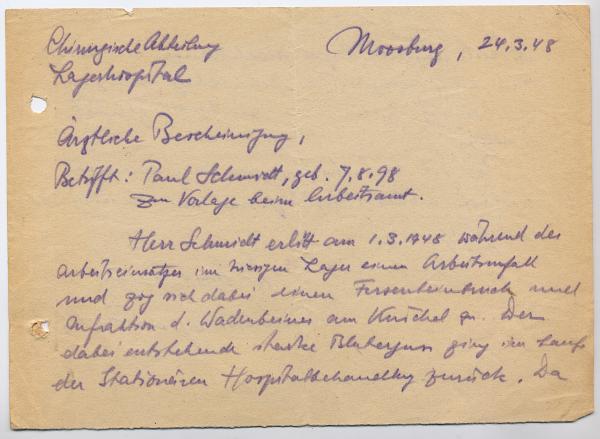 Chirurgische Abteilung
Moosburg, 24.3.48
Lagerhospital
Ärztliche Bescheinigung,
Betrifft: Paul Schmidt, geb. 7.8.98
Zur Vorlage beim Arbeitsamt.
Herr Schmidt erlitt am 1.3.1948 während des
Arbeitseinsatzes im hiesigen Lager einen Arbeitsunfall
und zog sich dabei einen Fersenbeinbruch und
Infraktion d. Wadenbeines am Knöchel zu. Der
dabei entstehende starke Bluterguss ging im Laufe
der stationären Hospitalbehandlg zurück. Da